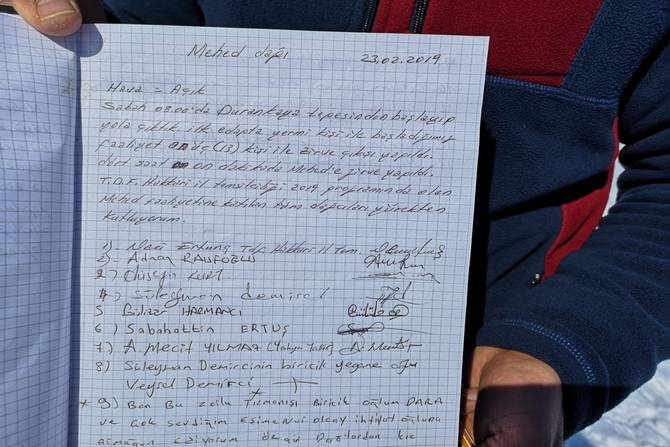 Mehed dağı 23.02.2019
Hava = Açık
Sabah 08.00'da Durankaya tepesinden başlayıp
yola çıktık. ilk etapta yirmi kişi ile başladığımız
faaliyet on üç (13) kişi ile zirve çıkışı yapıldı.
dört saat on dakikada Mehed'e zirve yapıldı.
T.D.F. Hakkari il temsilciliği 2019 programında olan
Mehed faaliyetine katılan tüm dağcıları yürekten
kutluyorum.
1)- Naci Ertunç Tdf Hakkari il Tem.
2)- Adnan RAUFOĞLU
3) Hüseyin KURT
4) Süleyman demirel
5 HARMANCI
6) Sabahattin ERTUŞ
7) A Mecit YILMAZ
8) Süleyman Demircinin biricik yegene oğlu
Veysel Demirci
* 9) Ben Bu zorlu Tırmanışı Biricik oğlum DARA
ve çok sevdiğim Eşime
ediyorum Dağlardan